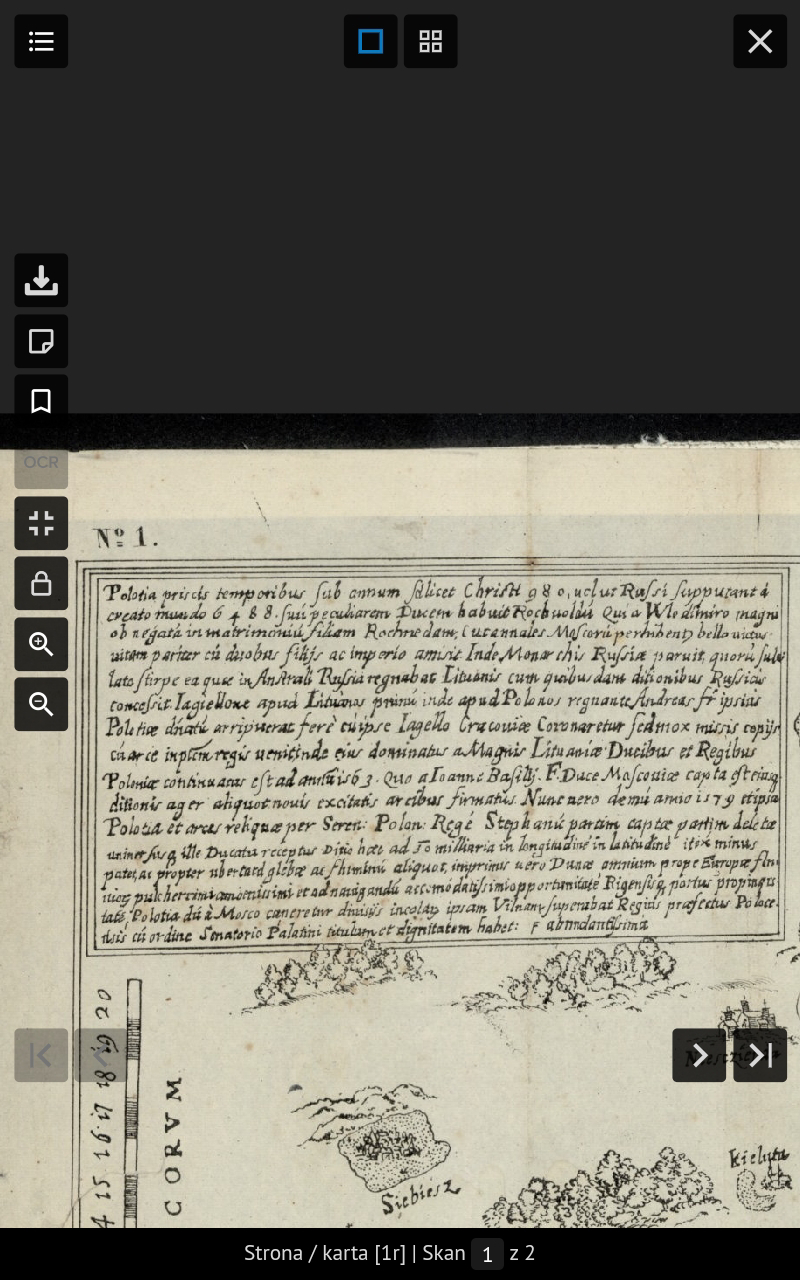 OCR
Nº 1.
Polotia priscis temporibus sub annum scilicet Christi 980, uelut Russi supputant à
creato mundo 6488. suū peculiarem Ducem habuit Rochuoldū Qui a Wlodimiro magni
ob negatā in matrimoniū filiam Rochnedam, ut annales Moscorū perhibent, bello uictus
uitam pariter cū duobus filijs ac imperio amisit Inde Monarchis Russiæ paruit, quorū
lato stirpe ea quæ in Australi Russia regnabat Lituanis cum quibusdam ditionibus Russicis
concessit. Iagiellone apud Lituanos primū inde apud Polonos regnante Andreas fr̄ ipsius
Polotiæ dn̄atū arripuerat ferè cū ipse Iagello Cracouiæ Coronaretur sed mox missis copijs
cū arce in ptem regis uenit inde eius dominatus a Magnis Lituaniæ Ducibus et Regibus
Poloniæ continuatus est ad annū 1563. Quo a Ioanne Basilij. F. Duce Moscouiæ capta est eiusq
ditionis ager aliquot nouis excitatis arcibus firmatus. Nunc uero demū anno 1579 et ipsa
Polotia et arces reliquæ per Seren: Polon: Regē Stephanū partim captæ partim deletæ
uniuersusq ille Ducatū receptus Ditio hæc ad 50 milliaria in longitudinē in latitudinē itē minus
patet, ac propter ubertatē glebæ ac fluminū aliquot, imprimis uero Dunæ omnium prope Europæ
pulcherrimi amœnissimi et ad nauigandū accommodatissimi opportunitatē Rigensisq portus propinqui
tatē, Polotia dū à Mosco caperetur diuitijs incolarū ipsam Vilnam superabat Regius præfectus Poloce
nsis cū ordine Senatorio Palatini titulum et dignitatem habet: F abundantissima
CORVM
15 16 17 18 19 20
Siebiesz
Kieluta
Strona / karta [1r] | Skan 1 z 2